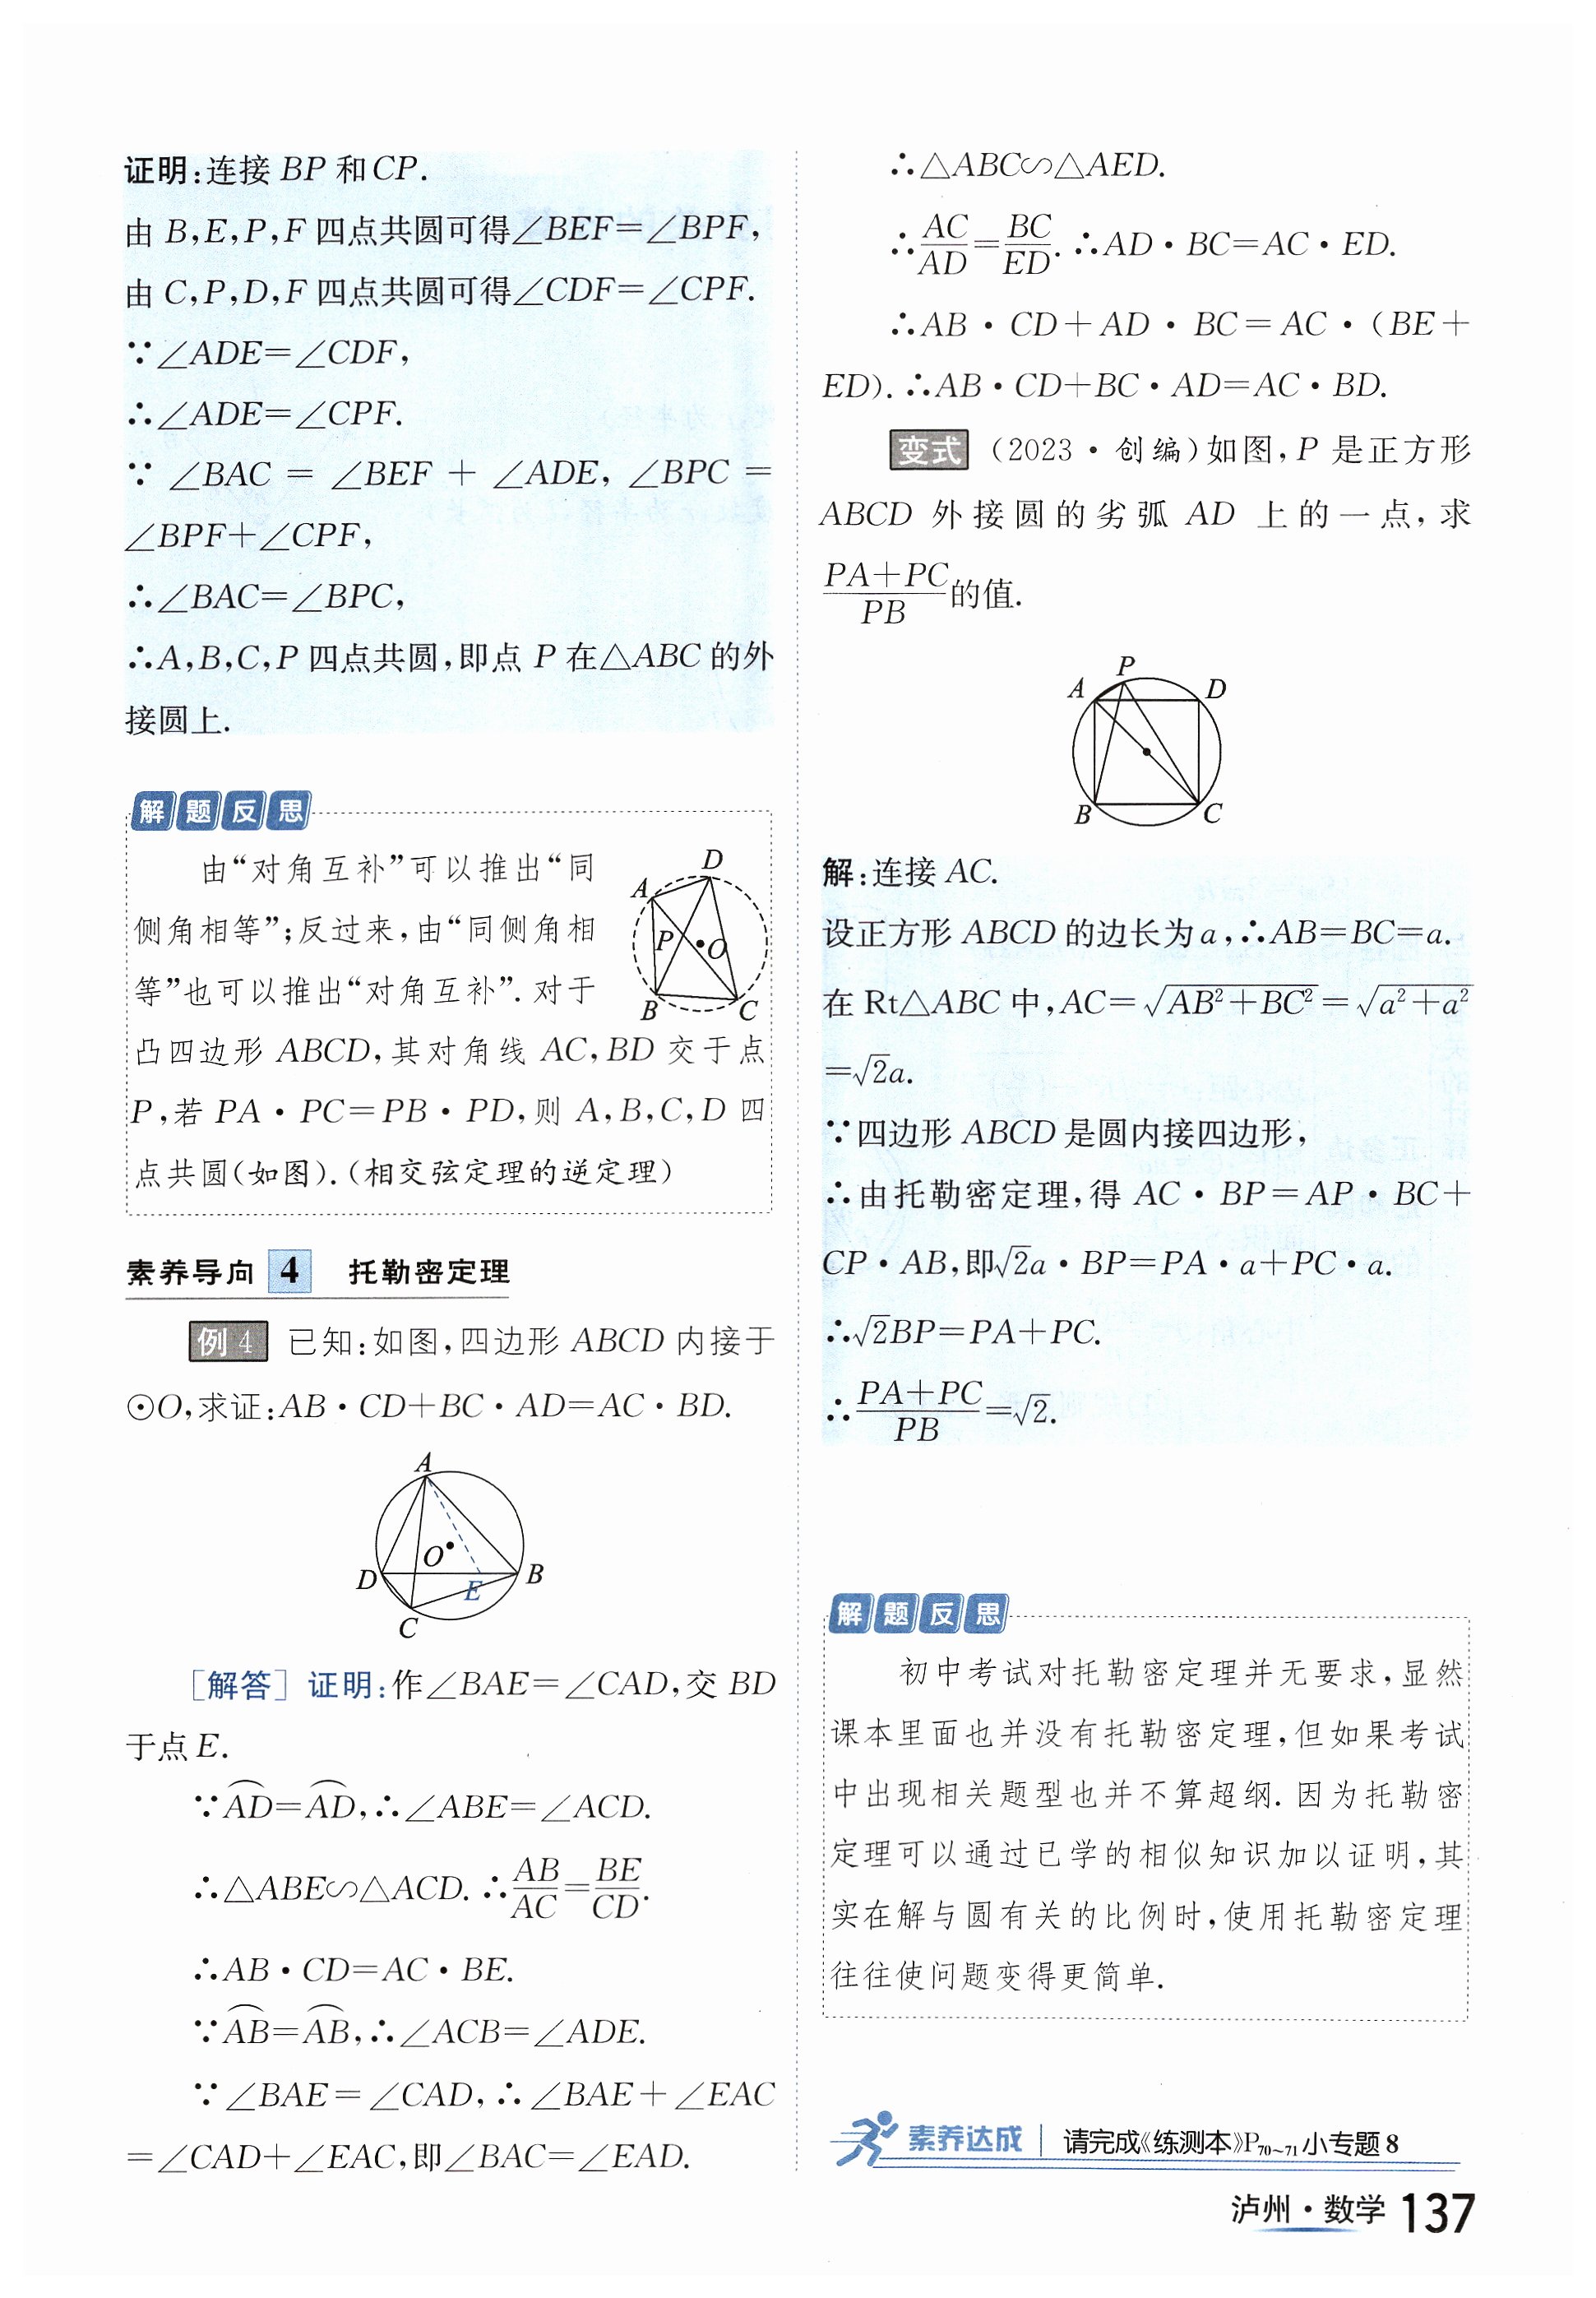 证明:连接 BP 和 CP.
由 B,E,P,F 四点共圆可得∠BEF=∠BPF,
由 C,P,D,F 四点共圆可得∠CDF=∠CPF.
∵∠ADE=∠CDF,
∴∠ADE=∠CPF.
∵ ∠BAC = ∠BEF + ∠ADE, ∠BPC =
∠BPF+∠CPF,
∴∠BAC=∠BPC,
∴A,B,C,P 四点共圆,即点 P 在△ABC 的外
接圆上.
解题反思
由“对角互补”可以推出“同
侧角相等”;反过来,由“同侧角相
等”也可以推出“对角互补”.对于
凸四边形 ABCD,其对角线 AC,BD 交于点
P,若 PA·PC=PB·PD,则 A,B,C,D 四
点共圆(如图).(相交弦定理的逆定理)
D
A
P
O
B
C
素养导向 4 托勒密定理
例4 已知:如图,四边形 ABCD 内接于
⊙O,求证:AB·CD+BC·AD=AC·BD.
A
O
D
E
B
C
[解答] 证明:作∠BAE=∠CAD,交 BD
于点 E.
∵⌒AD=⌒AD,∴∠ABE=∠ACD.
∴△ABE∽△ACD.∴AB/AC=BE/CD.
∴AB·CD=AC·BE.
∵⌒AB=⌒AB,∴∠ACB=∠ADE.
∵∠BAE=∠CAD,∴∠BAE+∠EAC
=∠CAD+∠EAC,即∠BAC=∠EAD.
∴△ABC∽△AED.
∴AC/AD=BC/ED.∴AD·BC=AC·ED.
∴AB·CD+AD·BC=AC·(BE+
ED).∴AB·CD+BC·AD=AC·BD.
变式 (2023·创编)如图,P 是正方形
ABCD 外接圆的劣弧 AD 上的一点,求
(PA+PC)/PB的值.
P
A
D
B
C
解:连接 AC.
设正方形 ABCD 的边长为a,∴AB=BC=a.
在 Rt△ABC 中,AC=√(AB²+BC²)=√(a²+a²)
=√2a.
∵四边形 ABCD 是圆内接四边形,
∴由托勒密定理,得 AC·BP=AP·BC+
CP·AB,即√2a·BP=PA·a+PC·a.
∴√2BP=PA+PC.
∴(PA+PC)/PB=√2.
解题反思
初中考试对托勒密定理并无要求,显然
课本里面也并没有托勒密定理,但如果考试
中出现相关题型也并不算超纲.因为托勒密
定理可以通过已学的相似知识加以证明,其
实在解与圆有关的比例时,使用托勒密定理
往往使问题变得更简单.
素养达成 | 请完成《练测本》P70~71小专题8
泸州·数学 137